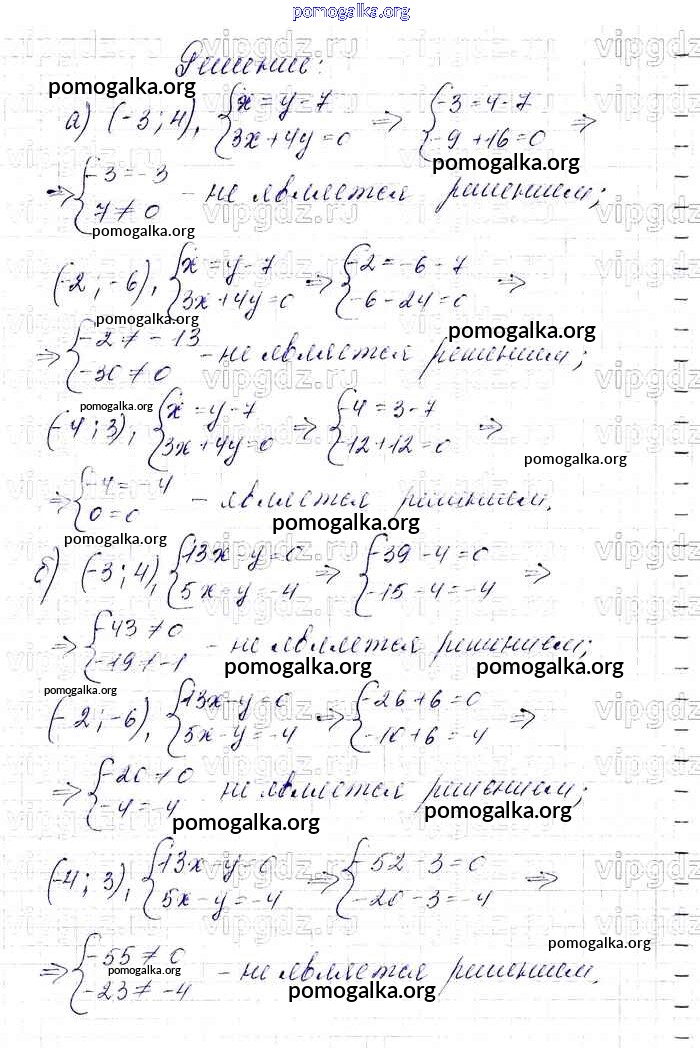 pomogalka.org
Решение:
pomogalka.org
а) (-3; 4), {x = y - 7 ⇒ {-3 = 4 - 7 ⇒
{3x + 4y = 0 {-9 + 16 = 0
pomogalka.org
⇒ {-3 = -3 - не является решением;
{7 ≠ 0
pomogalka.org
(-2; -6), {x = y - 7 ⇒ {-2 = -6 - 7 ⇒
{3x + 4y = 0 {-6 - 24 = 0
pomogalka.org
pomogalka.org
⇒ {-2 ≠ -13 - не является решением;
{-30 ≠ 0
pomogalka.org
(-4; 3), {x = y - 7 ⇒ {-4 = 3 - 7 ⇒
{3x + 4y = 0 {-12 + 12 = 0
pomogalka.org
⇒ {-4 = -4 - является решением.
{0 = 0
pomogalka.org
pomogalka.org
б) (-3; 4), {13x - y = 0 ⇒ {-39 - 4 = 0 ⇒
{5x - y = -4 {-15 - 4 = -4
⇒ {-43 ≠ 0 - не является решением;
{-19 ≠ -1
pomogalka.org pomogalka.org
pomogalka.org
(-2; -6), {13x - y = 0 ⇒ {-26 + 6 = 0 ⇒
{5x - y = -4 {-10 + 6 = -4
⇒ {-20 ≠ 0 не является решением;
{-4 = -4
pomogalka.org pomogalka.org
(-4; 3), {13x - y = 0 ⇒ {-52 - 3 = 0 ⇒
{5x - y = -4 {-20 - 3 = -4
pomogalka.org
⇒ {-55 ≠ 0 - не является решением.
{-23 ≠ -4
pomogalka.org
pomogalka.org
vipgdz.ru